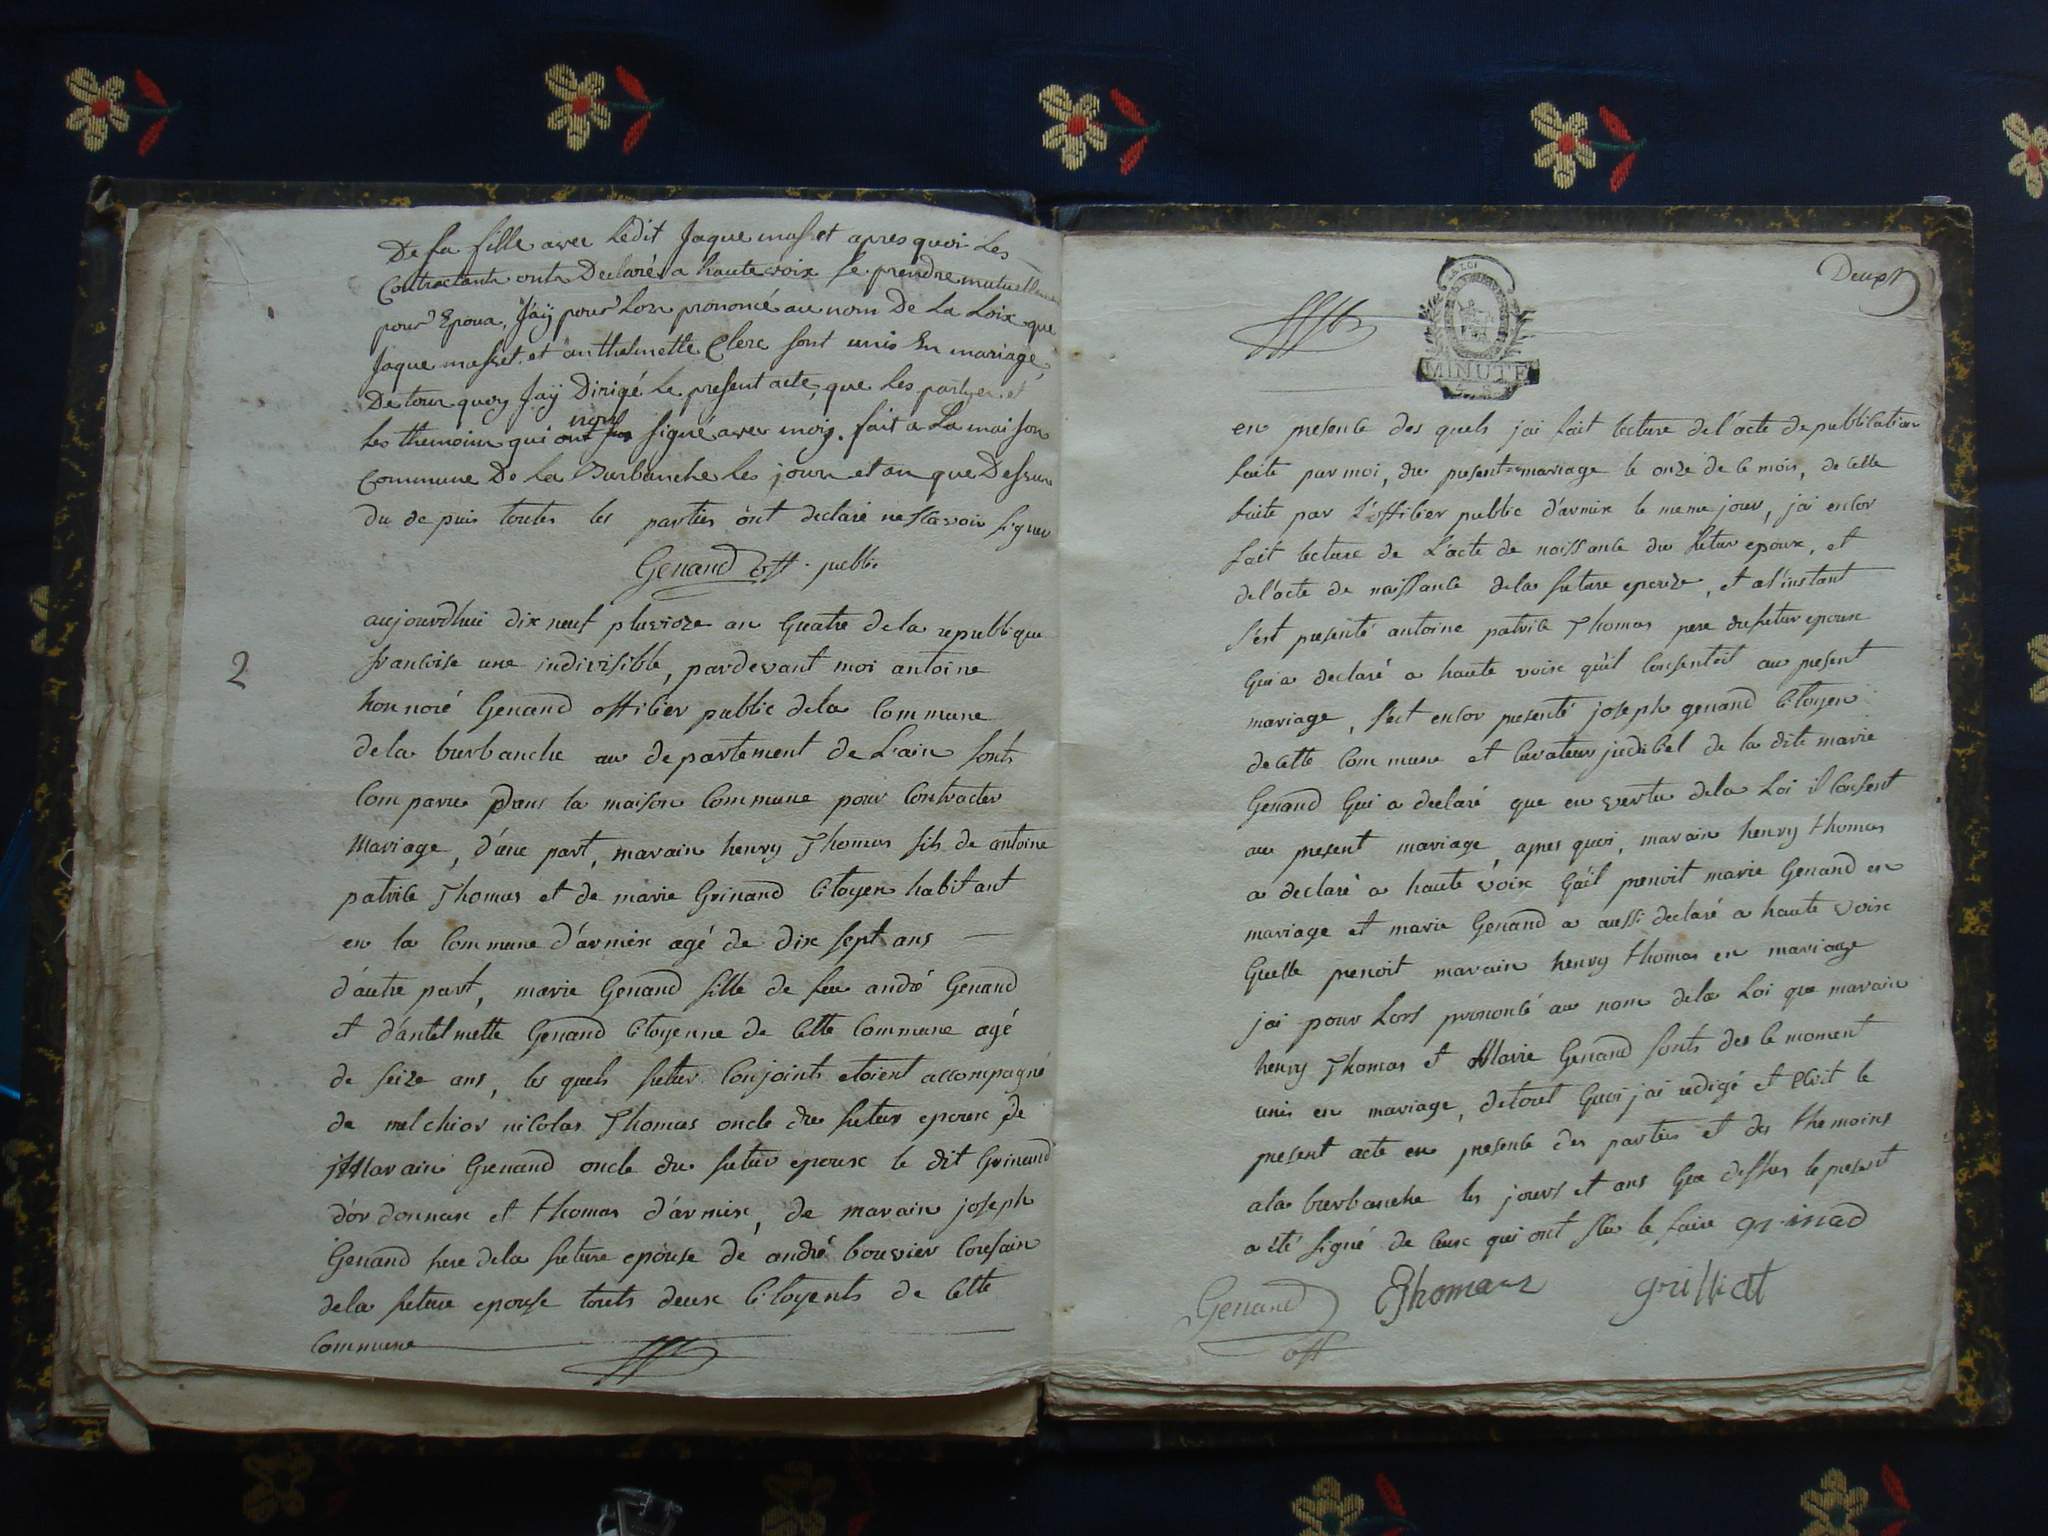 De sa fille avec Ledit Jaque masset apres quoi Les
Contractants onts Declarés a haute voix se prendre mutuellement
pour Epoux, Jaÿ pour Lors prononcé au nom De La Loix que
Jaque masset et anthelmette Clerc sont unis En mariage,
De tour quoy Jaÿ Dirigé Le present acte, que Les partyes et
Les themoins qui ont nons signé avec moy. fait a La maison
Commune De La Burbanche Les jours et an que Dessus
du depuis toutes les parties ont declaré ne scavoir signer
Genand off. public
2
aujourdhui dix neuf pluvioze an quatre dela republique
francoise une indivisible, pardevant moi antoine
honnoré Genand officier public dela Commune
dela burbanche au departement de L'ain sonts
Comparu Dans la maison Commune pour Contracter
Mariage, d'une part, marain henry Thomas fils de antoine
patrice Thomas et de marie Grinand Citoyen habitant
en la Commune d'armix agé de dix sept ans
d'autre part, marie Genand fille de feu andré Genand
et d'antelmette Genand Citoyenne de Cette Commune agé
de seize ans, les quels futur Conjoints etoient accompagné
de melchior nicolas Thomas oncle du futur epoux de
Marain Grenand oncle du futur epoux le dit Grinand
d'ordonnax et thomas d'armix, de marain joseph
Genand frere dela future epouse de andré bouvier Cousain
dela future epouse touts deux Citoyents de Cette
Commune
LA LOI
MINUTE
Deux
en presence des quels jai fait lecture de l'acte de publication
faite par moi, du present mariage le onze de ce mois, de celle
faite par l'officier public d'armix le meme jour, jai encor
fait lecture de L'acte de naissance du futur epoux, et
de l'acte de naissance dela future epouze, et a l'instant
s'est presenté antoine patrice Thomas pere du futur epoux
qui a declaré a haute voix qu'il Consentoit au present
mariage, s'est encor presenté joseph genand Citoyen
de cette Commune et Curateur judiciel de la dite marie
Genand qui a declaré que en vertu dela Loi il Consent
au present mariage, apres quoi, marain henry thomas
a declaré a haute voix qu'il prenoit marie Genand en
mariage et marie Genand a aussi declaré a haute voix
quelle prenoit marain henry thomas en mariage
jai pour Lors prononcé au nom dela Loi que marain
henry Thomas et Marie Genand sonts des ce moment
unis en mariage, detout quoi jai redigé et ecrit le
present acte en presence des parties et des themoins
ala burbanche les jours et ans que dessus le present
a été signé de Ceux qui ont scu le faire grinad
Genand Thomas grilliat
off